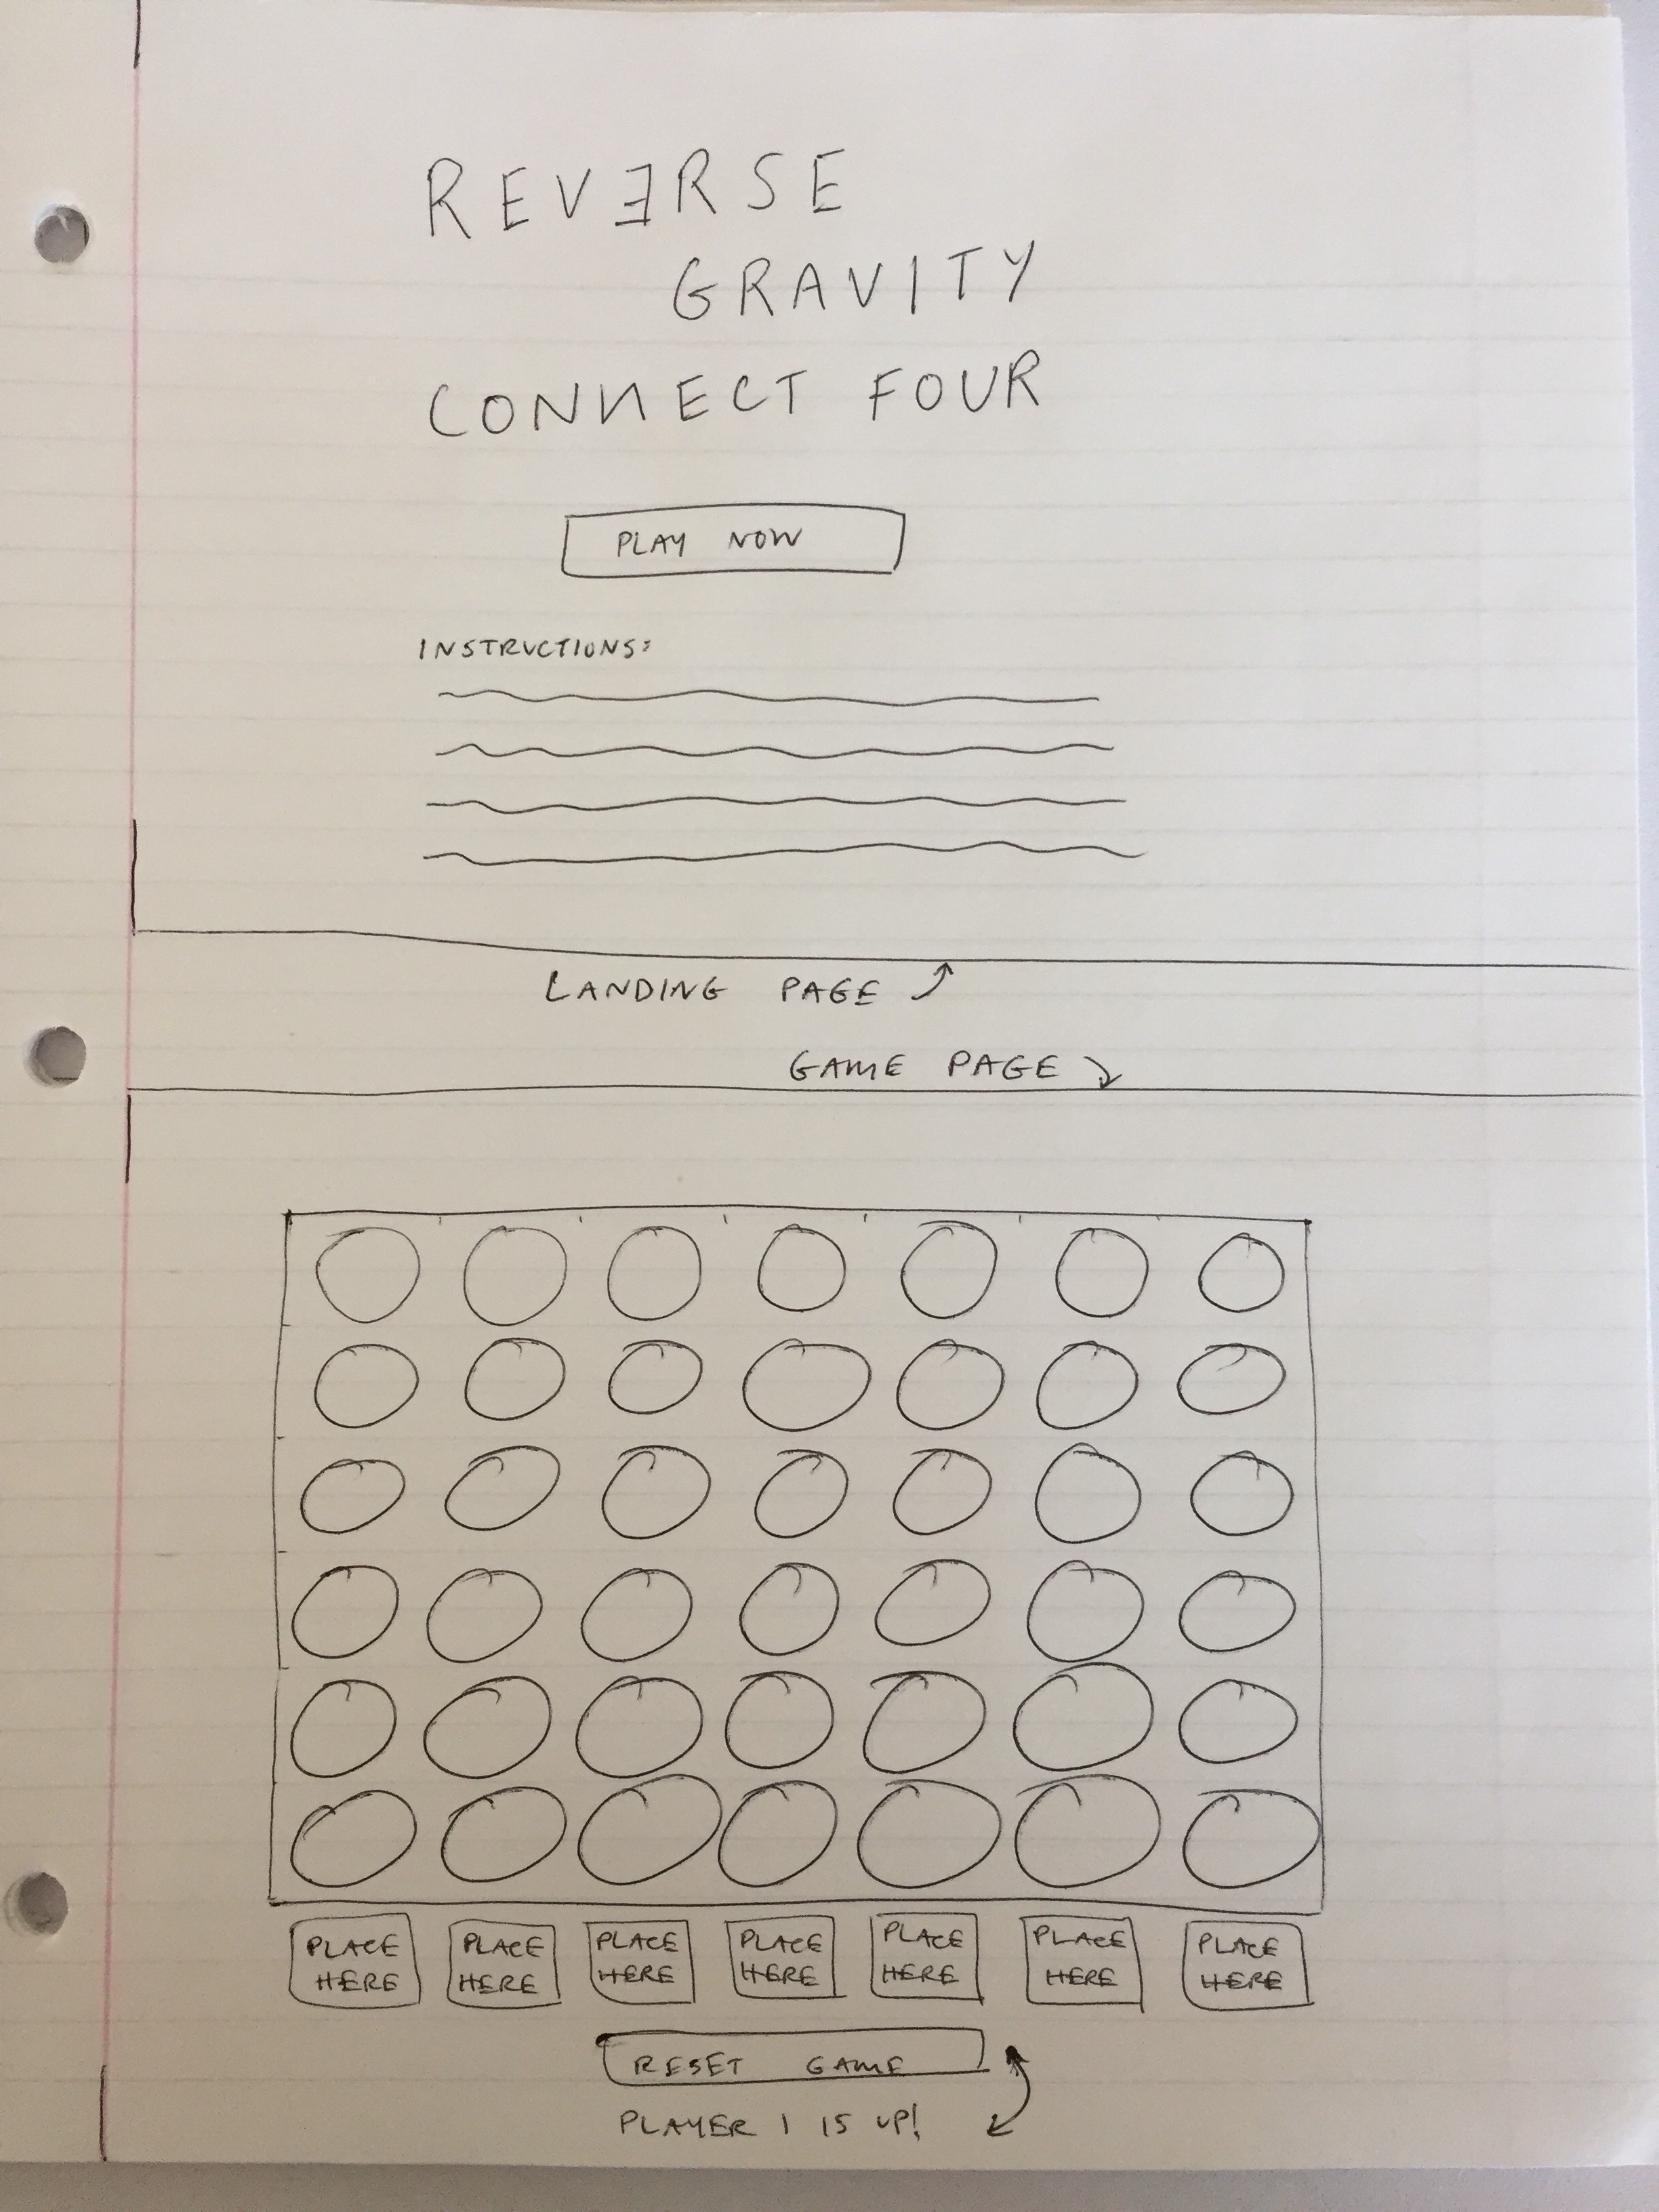 REVƎRSE
GRAVITY
CONИECT FOUR
PLAY NOW
INSTRUCTIONS:
LANDING PAGE
GAME PAGE
PLACE HERE
PLACE HERE
PLACE HERE
PLACE HERE
PLACE HERE
PLACE HERE
PLACE HERE
RESET GAME
PLAYER 1 IS UP!